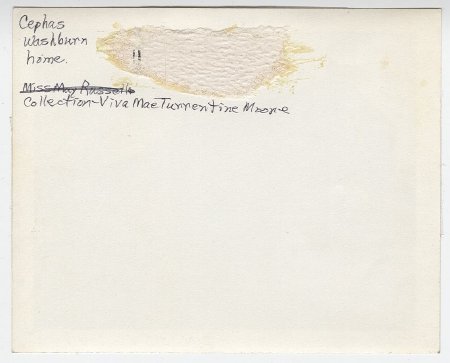 Cephas
Washburn
home.
Miss May Russell
Collection-Viva Mae Turrentine Moore